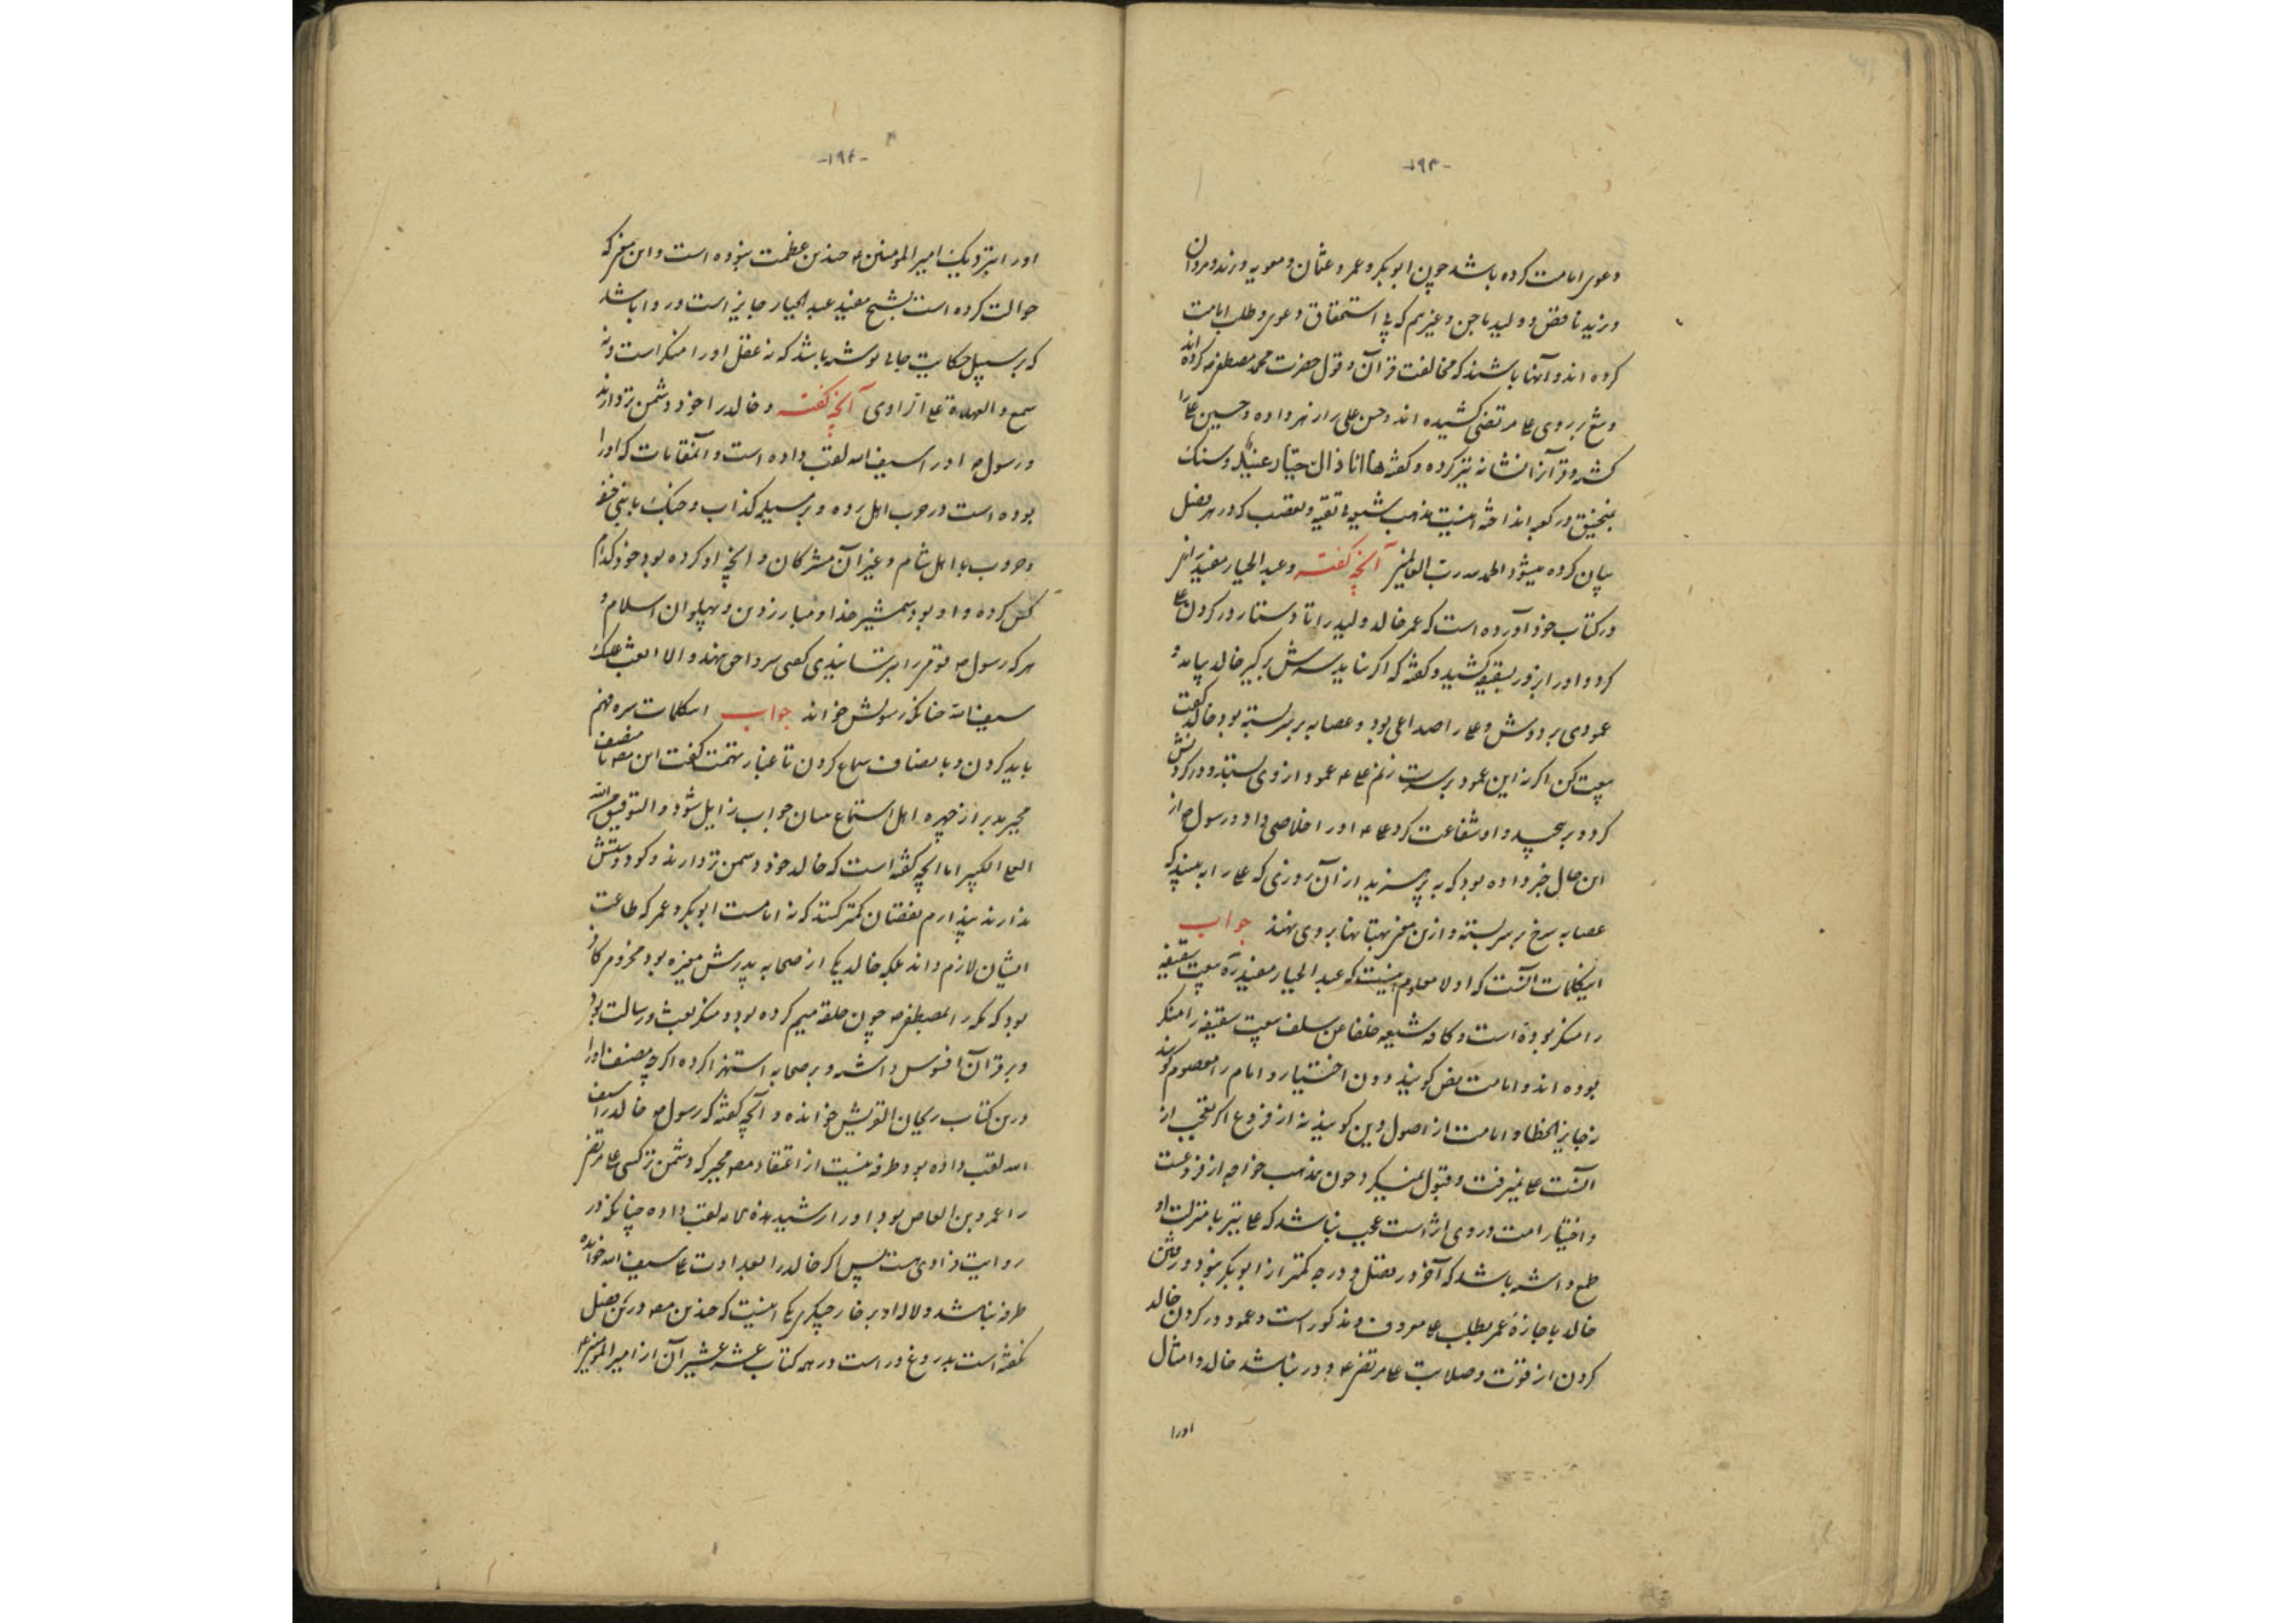 -۱۹۳-
دعوی امامت کرده باشد چون ابوبکر و عمر و عثمان و معویه و یزید و مروان
و یزید ناقص و ولید ماجن و غیرهم که بی استحقاق دعوی و طلب امامت
کرده اند و آنها باشند که مخالفت قرآن و قول حضرت محمد مصطفی ص کرده اند
و تیغ بر روی علی مرتضی کشیده اند و حسن علی را زهر داده و حسین علی را
کشته و قرآن را نشانه تیر کرده و گفته ها انا ذاک جبار عنید و سنگ
بمنجنیق در کعبه انداخته اینست مذهب شیعه بی تقیه و تعصب که در هر فصل
بیان کرده میشود الحمد لله رب العالمین آنچه گفته و عبد الجبار مفید
در کتاب خود آورده است که عمر خالد ولید را تا دستار در گردن علی
کرد و او را بزور بسقیفه کشید و گفته که اگر نیاید سرش برگیر خالد بیامد و
عمودی بر دوش و علی را صداعی بود و عصابه بر سر بسته بود خالد گفت
بیعت کن اگر نه این عمود بر سرت زنم علی ع عمود از وی بستد و در گردنش
کرد و بر پیچید و او شفاعت کرد علی ع او را خلاصی داد و رسول ص از
این حال خبر داده بود که به پرهیزید از آن روزی که علی را به بینید که
عصابه سرخ بر سر بسته و ازین معنی بهتانها بر وی نهند جواب
اینکلمات آنست که اولا معلوم نیست که عبد الجبار مفید ره بیعت سقیفه
را منکر بوده است و کافه شیعه خلفا عن سلف بیعت سقیفه را منکر
بوده اند و امامت نص گویند دون اختیار و امام را معصوم گویند
نه جایز الخطا و امامت از اصول دین گویند نه از فروع اگر تعجب از
آنست علی نمیرفت و قبول نمیکرد چون مذهب خواجه از فروعست
و اختیار امت در وی اثر است عجب نباشد که علی نیز با منزلت او
طمع داشته باشد که آخر در فضل و درجه کمتر از ابوبکر نبود و رفتن
خالد باجازهٔ عمر بطلب علی معروف و مذکور است و عمود در گردن خالد
کردن از قوت و صلابت علی مرتضی ع دور نباشد خالد و امثال
او را
-۱۹۴-
او را بنزدیک امیر المؤمنین ع چندین عظمت نبوده است و این معنی که
حوالت کرده است بشیخ مفید عبد الجبار جایز است و روا باشد
که بر سبیل حکایت جایی نوشته باشد که نه عقل او را منکر است و نه
سمع و العهدة علی الراوی آنچه گفته و خالد را خود دشمن تر دارند
و رسول ص او را سیف الله لقب داده است و آنمقامات که او را
بوده است در حرب اهل رده و بر مسیلمه کذاب و جنگ با بنی حنیفه
و حروب با اهل شام و غیر آن مشرکان و آنچه او کرده بود خود کدام
کس کرده و او بود شمشیر خدا و مبارز دین و پهلوان اسلام و
هر که رسول ص
سیف الله چنانکه رسولش خواند جواب اینکلمات بره فهم
باید کردن و بانصاف سماع کردن تا غبار تهمت گفت این مصنف نامنصف
مجبر مدبر از چهره اهل استماع بیان جواب زایل شود و التوفیق من الله
العلی الکبیر اما آنچه گفته است که خالد خود دشمن تر دارند و گو دوستش
ندارند پندارم نقصان کمتر کند که نه امامت ابوبکر و عمر که طاعت
ایشان لازم داند بلکه خالد یکی از صحابه پدرش مغیره بود مخزوم کافر
بود که مکه را بمصطفی ص چون حلقه میم کرده بود و منکر بعث و رسالت بود
و بر قرآن افسوس داشته و بر صحابه استهزا کرده اگر چه مصنف او را
درین کتاب ریحان القریش خوانده و آنچه گفته که رسول ص خالد را سیف
الله لقب داده بود طرفه نیست از اعتقاد مصنف مجبر که دشمن تر کسی علی مرتضی
را عمرو بن العاص بود او را رشید هذه الامه لقب داده چنانکه در
روایت راوی هست پس اگر خالد را بعداوت علی سیف الله خوانده
طرفه نباشد
گفته است بدروغ و راست در همه کتاب عشر عشیر آن از امیر المؤمنین ع